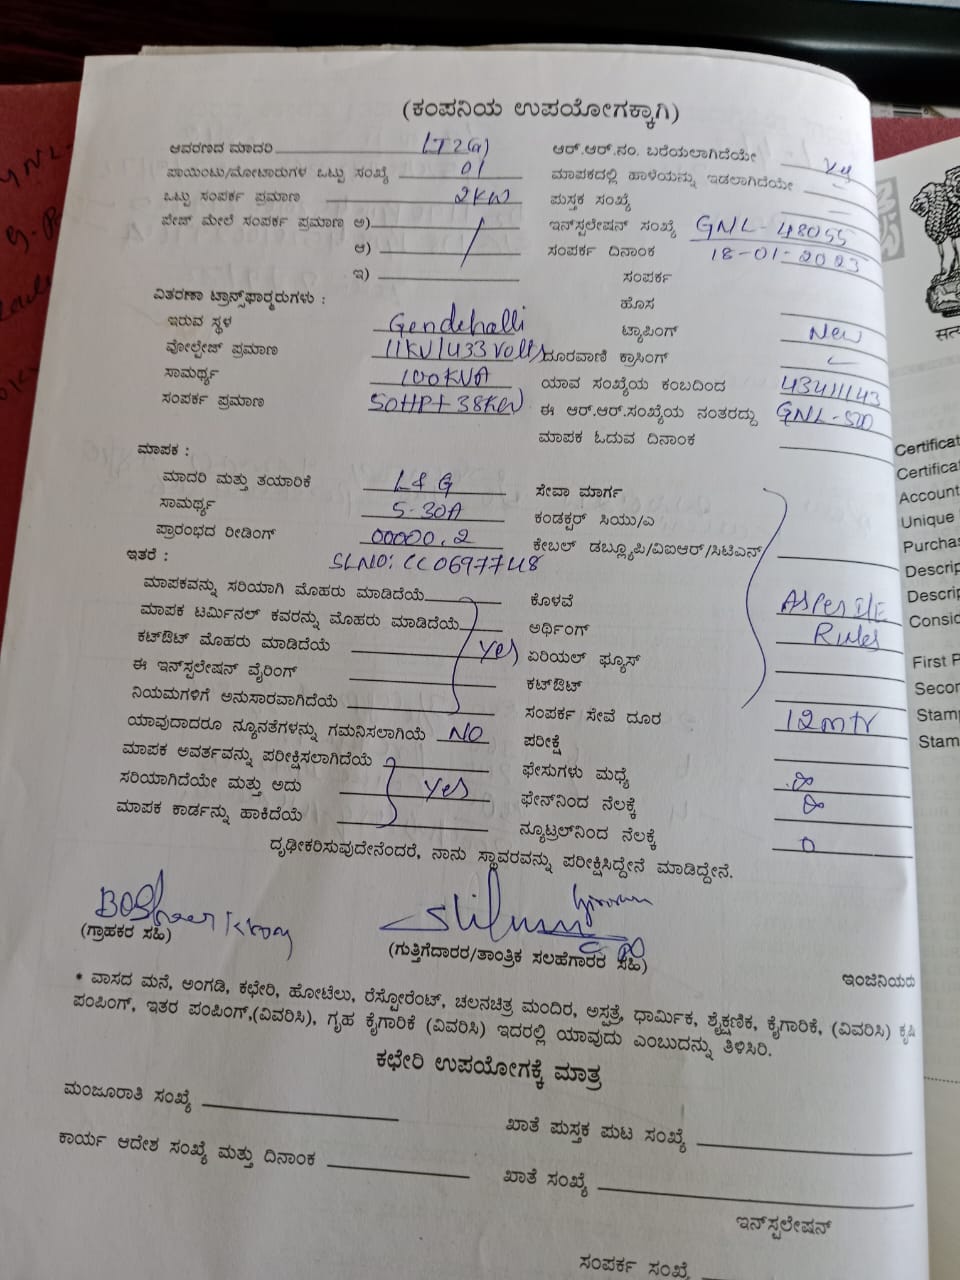 (ಕಂಪನಿಯ ಉಪಯೋಗಕ್ಕಾಗಿ)
ಆವರಣದ ಮಾದರಿ LT2(a) ಆರ್.ಆರ್.ನಂ. ಬರೆಯಲಾಗಿದೆಯೇ
ಪಾಯಿಂಟು/ಮೋಟಾರುಗಳ ಒಟ್ಟು ಸಂಖ್ಯೆ 01 ಮಾಪಕದಲ್ಲಿ ಹಾಳೆಯನ್ನು ಇಡಲಾಗಿದೆಯೇ
ಒಟ್ಟು ಸಂಪರ್ಕ ಪ್ರಮಾಣ 2KW ಪುಸ್ತಕ ಸಂಖ್ಯೆ
ಪೇಜ್ ಮೇಲೆ ಸಂಪರ್ಕ ಪ್ರಮಾಣ ಅ) ಇನ್‌ಸ್ಪಲೇಷನ್ ಸಂಖ್ಯೆ GNL-48055
ಆ) ಸಂಪರ್ಕ ದಿನಾಂಕ 18-01-2023
ಇ) ಸಂಪರ್ಕ
ವಿತರಣಾ ಟ್ರಾನ್ಸ್‌ಫಾರ್‍ಮರುಗಳು : ಹೊಸ
ಇರುವ ಸ್ಥಳ Gendehalli ಟ್ಯಾಪಿಂಗ್ New
ವೋಲ್ಟೇಜ್ ಪ್ರಮಾಣ 11KV/433 Volts ದೂರವಾಣಿ ಕ್ರಾಸಿಂಗ್
ಸಾಮರ್ಥ್ಯ 100KVA ಯಾವ ಸಂಖ್ಯೆಯ ಕಂಬದಿಂದ
ಸಂಪರ್ಕ ಪ್ರಮಾಣ 50HP+38KW ಈ ಆರ್.ಆರ್.ಸಂಖ್ಯೆಯ ನಂತರದ್ದು
ಮಾಪಕ ಓದುವ ದಿನಾಂಕ
ಮಾಪಕ :
ಮಾದರಿ ಮತ್ತು ತಯಾರಿಕೆ L&G ಸೇವಾ ಮಾರ್ಗ
ಸಾಮರ್ಥ್ಯ 5-30A ಕಂಡಕ್ಟರ್ ಸಿಯು/ಎ
ಪ್ರಾರಂಭದ ರೀಡಿಂಗ್ 00000.2 ಕೇಬಲ್ ಡಬ್ಲ್ಯೂಪಿ/ವಿಐಆರ್/ಸಿಟಿಎಸ್
ಇತರೆ : SLNO: CC0697748
ಮಾಪಕವನ್ನು ಸರಿಯಾಗಿ ಮೊಹರು ಮಾಡಿದೆಯೆ ಕೊಳವೆ As per IE
ಮಾಪಕ ಟರ್ಮಿನಲ್ ಕವರನ್ನು ಮೊಹರು ಮಾಡಿದೆಯೆ ಅರ್ಥಿಂಗ್ Rules
ಕಟ್‌ಔಟ್ ಮೊಹರು ಮಾಡಿದೆಯೆ Yes ಏರಿಯಲ್ ಫ್ಯೂಸ್
ಈ ಇನ್‌ಸ್ಪಲೇಷನ್ ವೈರಿಂಗ್ ಕಟ್‌ಔಟ್
ನಿಯಮಗಳಿಗೆ ಅನುಸಾರವಾಗಿದೆಯೆ ಸಂಪರ್ಕ ಸೇವೆ ದೂರ 12mtr
ಯಾವುದಾದರೂ ನ್ಯೂನತೆಗಳನ್ನು ಗಮನಿಸಲಾಗಿಯೆ NO ಪರೀಕ್ಷೆ
ಮಾಪಕ ಅವರ್ತವನ್ನು ಪರೀಕ್ಷಿಸಲಾಗಿದೆಯೆ ಫೇಸುಗಳು ಮಧ್ಯೆ
ಸರಿಯಾಗಿದೆಯೇ ಮತ್ತು ಅದು Yes ಫೇಸ್‌ನಿಂದ ನೆಲಕ್ಕೆ
ಮಾಪಕ ಕಾರ್ಡನ್ನು ಹಾಕಿದೆಯೆ ನ್ಯೂಟ್ರಲ್‌ನಿಂದ ನೆಲಕ್ಕೆ 0
ದೃಢೀಕರಿಸುವುದೇನೆಂದರೆ, ನಾನು ಸ್ಥಾವರವನ್ನು ಪರೀಕ್ಷಿಸಿದ್ದೇನೆ ಮಾಡಿದ್ದೇನೆ.
(ಗ್ರಾಹಕರ ಸಹಿ) (ಗುತ್ತಿಗೆದಾರರ/ತಾಂತ್ರಿಕ ಸಲಹೆಗಾರರ ಸಹಿ) ಇಂಜಿನಿಯರು
* ವಾಸದ ಮನೆ, ಅಂಗಡಿ, ಕಛೇರಿ, ಹೋಟೆಲು, ರೆಸ್ಟೋರೆಂಟ್, ಚಲನಚಿತ್ರ ಮಂದಿರ, ಅಸ್ಪತ್ರೆ, ಧಾರ್ಮಿಕ, ಶೈಕ್ಷಣಿಕ, ಕೈಗಾರಿಕೆ, (ವಿವರಿಸಿ) ಕೃಷಿ
ಪಂಪಿಂಗ್, ಇತರ ಪಂಪಿಂಗ್,(ವಿವರಿಸಿ), ಗೃಹ ಕೈಗಾರಿಕೆ (ವಿವರಿಸಿ) ಇದರಲ್ಲಿ ಯಾವುದು ಎಂಬುದನ್ನು ತಿಳಿಸಿರಿ.
ಕಛೇರಿ ಉಪಯೋಗಕ್ಕೆ ಮಾತ್ರ
ಮಂಜೂರಾತಿ ಸಂಖ್ಯೆ ಖಾತೆ ಪುಸ್ತಕ ಪುಟ ಸಂಖ್ಯೆ
ಕಾರ್ಯ ಆದೇಶ ಸಂಖ್ಯೆ ಮತ್ತು ದಿನಾಂಕ ಖಾತೆ ಸಂಖ್ಯೆ
ಇನ್‌ಸ್ಪಲೇಷನ್
ಸಂಪರ್ಕ ಸಂಖ್ಯೆ
Certificat
Certificat
Account
Unique
Purcha
Descrip
Descrip
Consid
First P
Secon
Stam
Stam